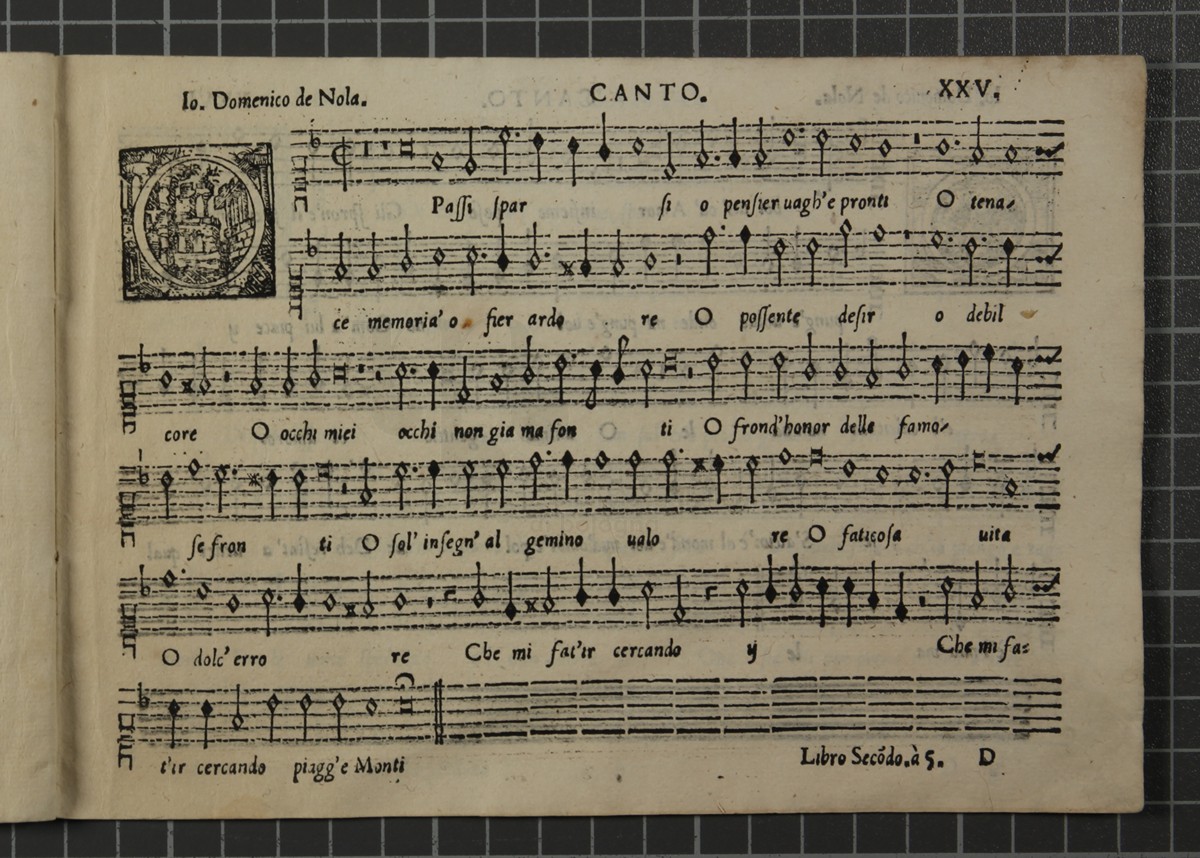 Io. Domenico de Nola. CANTO. XXV.
O Passi spar si o pensier uagh'e pronti O tena-
ce memoria' o fier ardo re O possente desir o debil
core O occhi miei occhi non gia ma fon ti O frond'honor delle famo-
se fron ti O sol' insegn' al gemino ualo re O faticosa uita
O dolc' erro re Che mi fat'ir cercando y Che mi fa=
t'ir cercando piagg'e Monti
Libro Secõdo.à 5. D